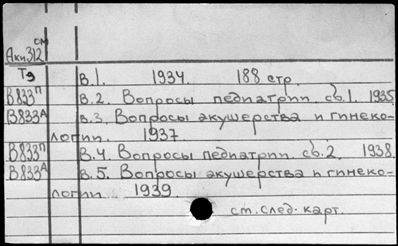 см
Аки312
Тэ В.1. 1934. 188 стр.
В833п В.2. Вопросы педиатрии сб.1. 1935.
В833А В.3. Вопросы акушерства и гинеко-
логии. 1937.
В833п В.4. Вопросы педиатрии. сб.2. 1938.
В833А В.5. Вопросы акушерства и гинеко-
логии. 1939
ст.след. карт.